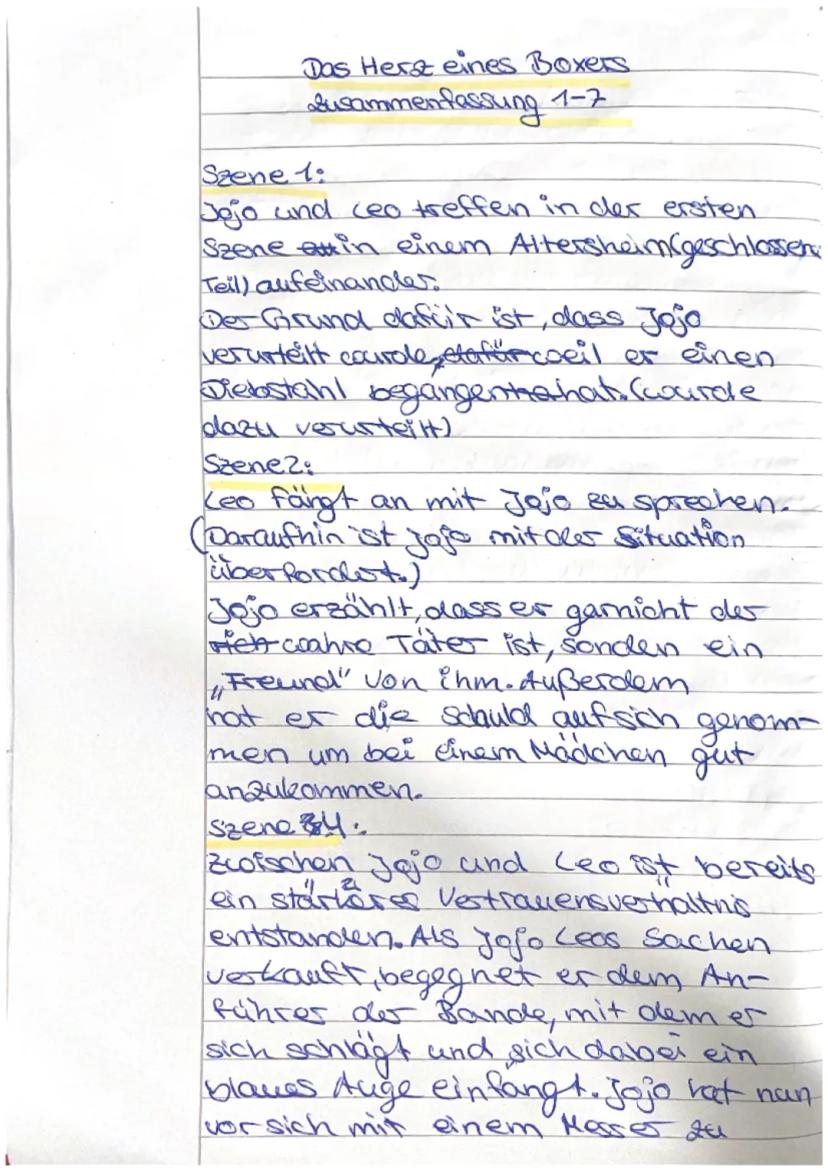 Das Herz eines Boxers
Zusammenfassung 1-7
Szene 1:
Jojo und Leo treffen in der ersten
Szene in einem Altersheim (geschlossen
Teil) aufeinander.
Der Grund dafür ist, dass Jojo
verurteilt wurde, weil er einen
Diebstahl begangen hat. (wurde
dazu verurteilt)
Szene 2:
Leo fängt an mit Jojo zu sprechen.
(Daraufhin ist Jojo mit der Situation
überfordert.)
Jojo erzählt, dass er garnicht der
wahre Täter ist, sonden ein
„Freund" von ihm. Außerdem
hat er die Schuld auf sich genom-
men um bei einem Mädchen gut
anzukommen.
Szene 4:
Zwischen Jojo und Leo ist bereits
ein stärkeres Vertrauensverhältnis
entstanden. Als Jojo Leos Sachen
verkauft, begegnet er dem An-
führer der Bande, mit dem er
sich schlägt und sich dabei ein
blaues Auge einfängt. Jojo hat nun
vor sich mit einem Messer zu